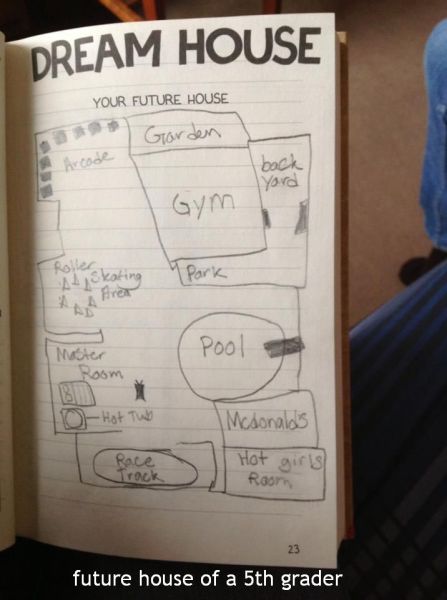 DREAM HOUSE
YOUR FUTURE HOUSE
Garden
Arcade
back
yard
Gym
Roller
Skating
Area
Park
Pool
Master
Room
Hot Tub
Mcdonald's
Race
Track
Hot girls
Room
23
future house of a 5th grader